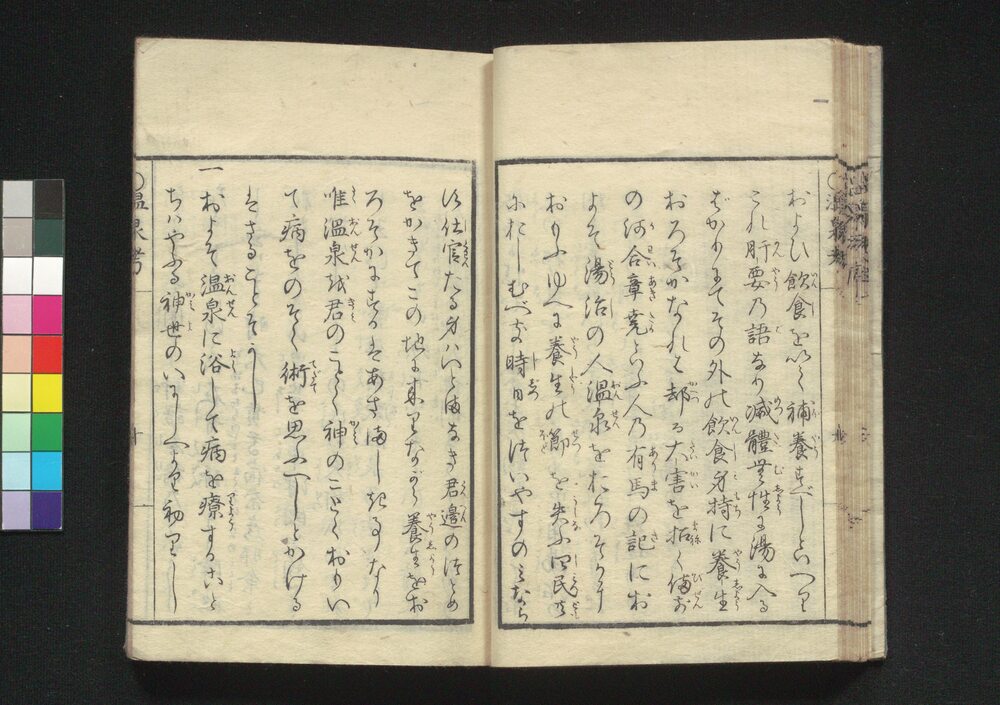 および飲食を以て補養すべしといへり
これ肝要の語なり減體無性に湯に入る
ばかりにてその外の飲食身持に養生
おろそかなれは却て大害を招く備前
の河合章堯といふ人の有馬の記にお
よそ湯治の人温泉をおろそかに
おもふゆへに養生の節を失ふ四民共
におしむべき時日をついやすのみなら
す仕官たる身はいとまなき君邊のつとめ
をかきてこの地に来りながら養生をお
ろそかにするはあさましき事なり
唯温泉を君のごとく神のごとくおもい
て病をのぞく術を思ふべしとかける
はさることぞかし
一 およそ温泉に浴して病を療すること
ちはやふる神世のいにしへより初りし
○温泉考